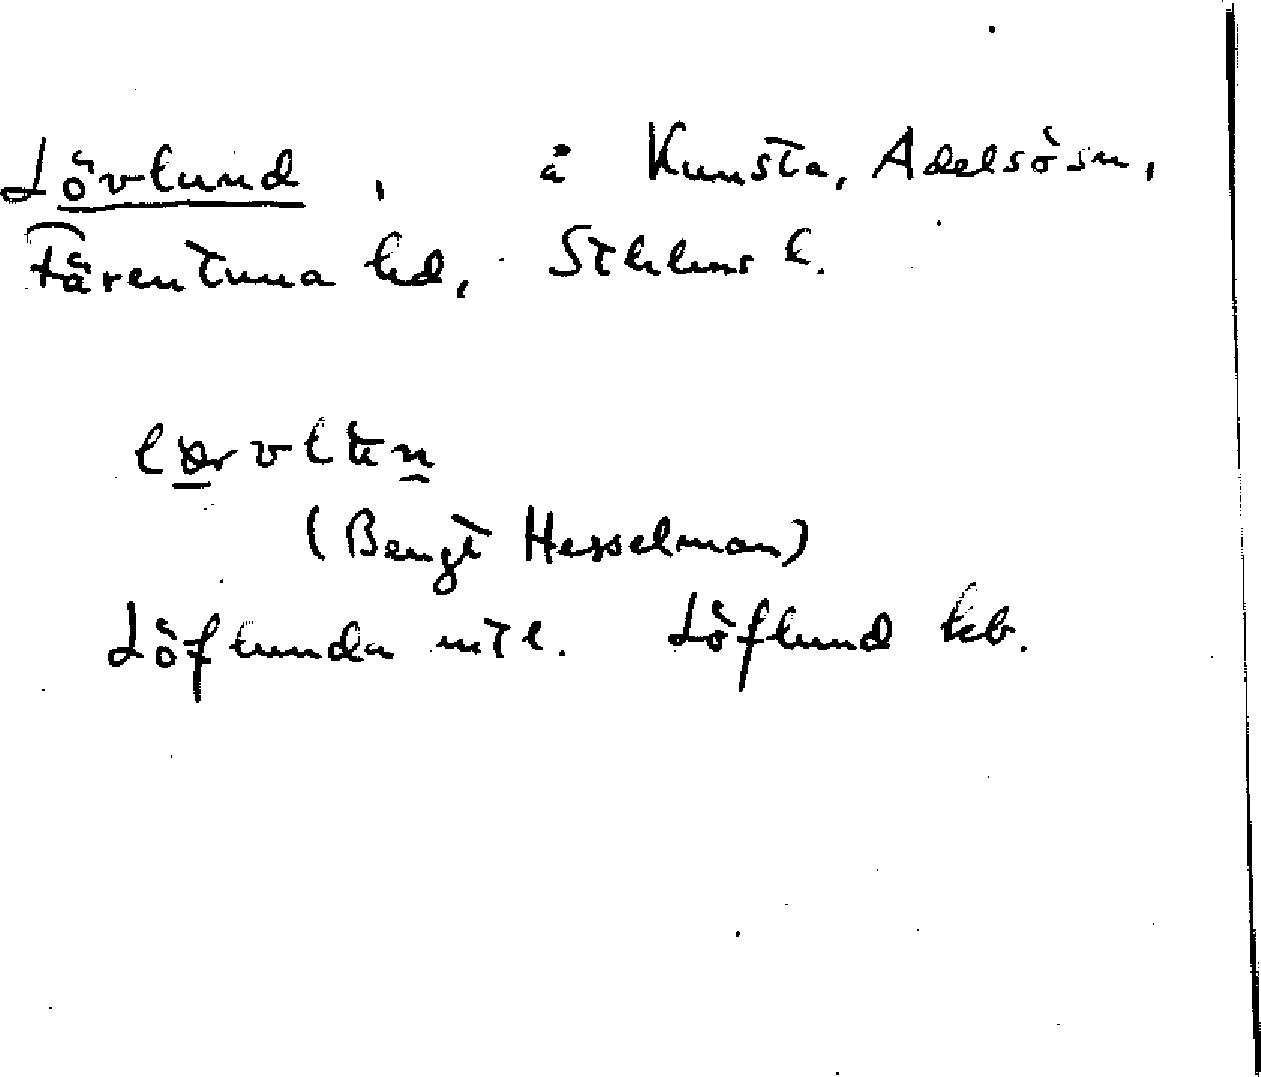 Lövlund, å Kunsta, Adelsö sn,
Färentuna hd, Sthlms l.
(Bengt Hesselman)
Löflunda mtl. Löflund kb.